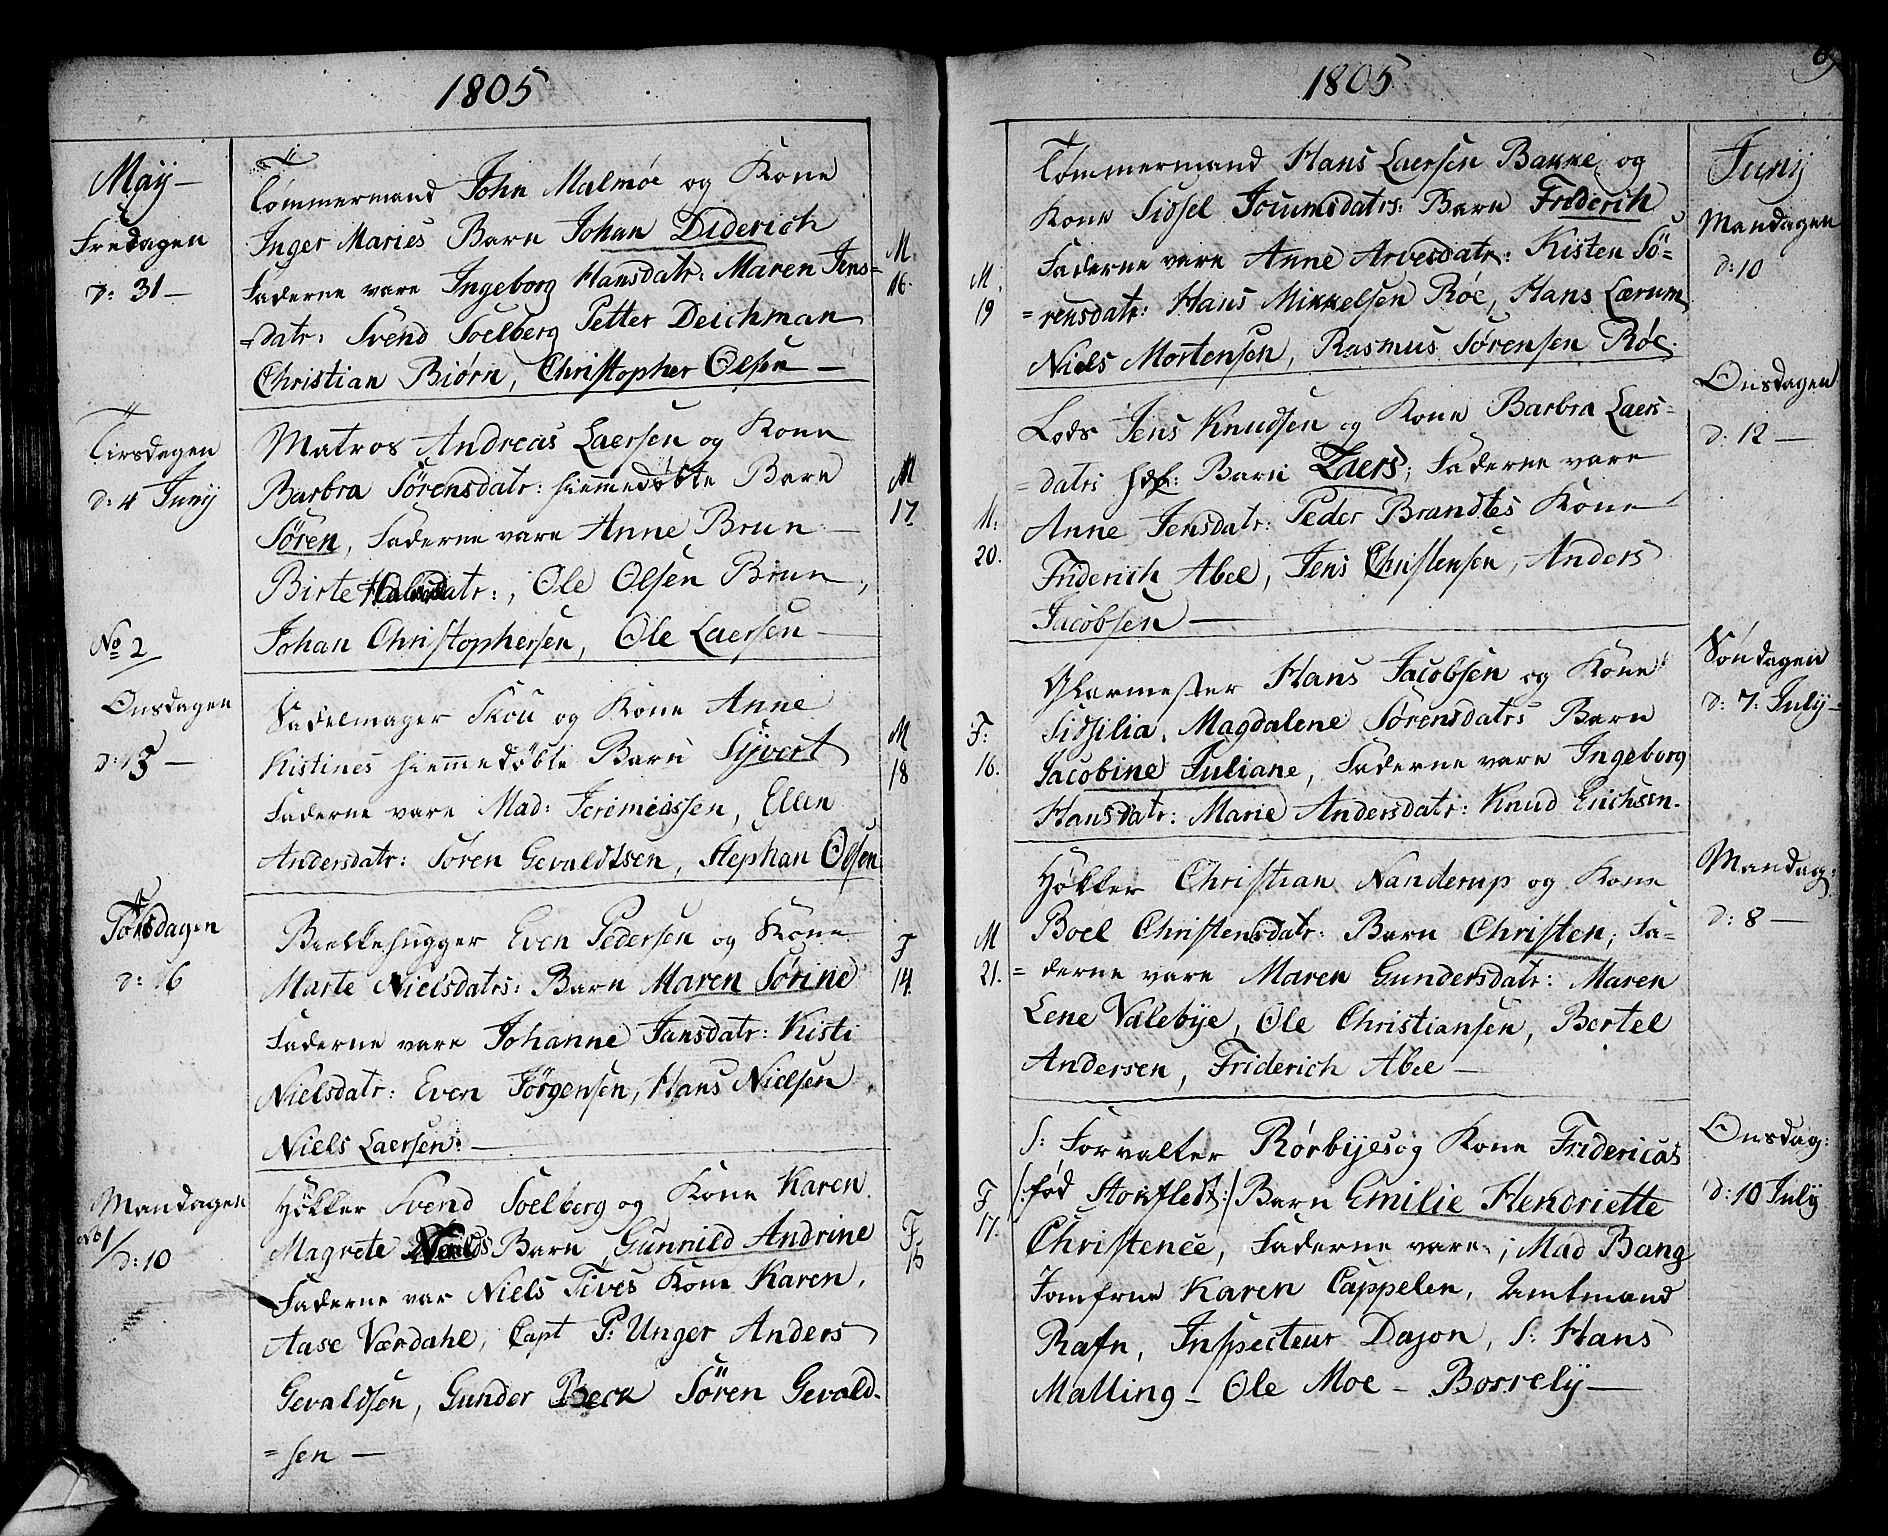 1805
May
Fredagen
d: 31
Tømmermand John Malmøe og Kone
Inger Maries Barn Johan Diderich
Faderne vare Ingeborg Hansdatr: Maren Jens=
=datr: Svend Soelberg Petter Deichman
Christian Biørn, Christopher Olsen
M.
16.
Tirsdagen
d: 4 Junij
Matros Andreas Laersen og Kone
Barbra Sørensdatr: hiemmedøbte Barn
Søren, Faderne vare Anne Brun
Birte datr:, Ole Olsen Brun,
Johan Christophersen, Ole Laersen
M
17
No 2
Onsdagen
d: 5
Sadelmager Skou og Kone Anne
Kistines hiemmedøbte Barn Syvert
Faderne vare Mad: Jeremiassen, Ellen
Andersdatr: Søren Gevaldtsen, Stephan Olsen
M
18
Torsdagen
d: 6
Bielkehugger Even Pedersen og Kone
Marte Nielsdatrs: Barn Maren Sørine
Faderne vare Johanne Jansdatr: Kisti
Nielsdatr: Even Jørgensen, Hans Nielsen
Niels Laersen:
F
14.
Mandagen
No 1
d: 10
Høkker Svend Soelberg og Kone Karen
Magrete Barn Gunnild Andrine
Faderne var Niels Tives Kone Karen,
Aase Værdahl, Capt P: Unger Anders
Gevaldsen, Gunder Beck Søren Gevald=
=sen
F
15
1805
Junij
Mandagen
d: 10
Tømmermand Hans Laersen Bakke og
Kone Sidsel Joumsdatrs: Barn Friderich
Faderne vare Anne Arvesdatr: Kisten Sö=
=rensdatr: Hans Mikkelsen Røe, Hans Lærum
Niels Mortensen, Rasmus Sørensen Røe.
M.
19
Onsdagen
d: 12
Lods Jens Knudsen og Kone Barbra Laers=
=datrs Barn Laers; Faderne vare
Anne Jensdatr: Peder Brandtes Kone
Friderich Abel, Jens Christensen, Anders
Jacobsen
M:
20.
Søndagen
d: 7: July
Glarmester Hans Jacobsen og Kone
Sidsilia Magdalene Sørensdatrs Barn
Jacobine Juliane, Faderne vare Ingeborg
Hansdatr: Marie Andersdatr: Knud Erichsen.
F:
16.
Mandag:
d: 8
Høkker Christian Nanderup og Kone
Boel Christensdatr: Barn Christen; Fa=
=derne vare Maren Gundersdatr: Maren
Lene Valebye, Ole Christiansen, Bertel
Andersen, Friderich Abel
M
21.
Onsdag:
d: 10 July
S: Forvalter Rørbyes og Kone Fridericas
/:fød :/ Barn Emilie Hendriette
Christence, Faderne vare:; Mad Bang
Jomfrue Karen Cappelen, Amtmand
Rafn, Inspecteur Dajon, S: Hans
Malling – Ole Moe – Borrely
F
17.